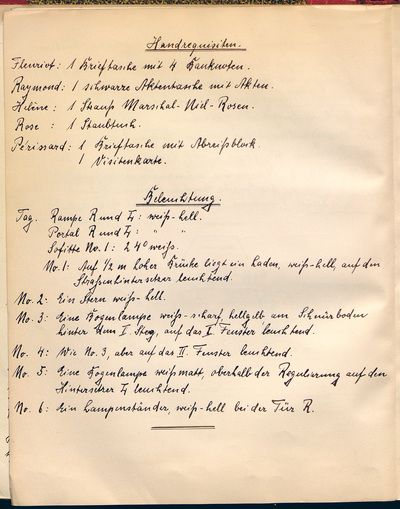 Handrequisiten.
Fleuriot: 1 Brieftasche mit 4 Banknoten.
Raymond: 1 schwarze Aktentasche mit Akten.
Helène: 1 Strauß Marschal-Niel-Rosen.
Rose: 1 Staubtuch.
Périssard: 1 Brieftasche mit Abreißblock.
1 Visitenkarte.
Beleuchtung.
Tag. Rampe R und L: weiß-hell.
Portal R und L: " "
Sofitte No. 1: weiß.
No. 1: Auf ½ m hoher Brücke liegt ein Faden, weiß-hell, auf den
Straßenhintersetzer leuchtend.
No. 2: Ein Stern weiß-hell.
No. 3: Eine Bogenlampe weiß-scharf, hellgelb am Schnürboden
hinter dem I. Steg, auf das I. Fenster leuchtend.
No. 4: Wie No. 3, aber auf das II. Fenster leuchtend.
No. 5: Eine Bogenlampe weißmatt, oberhalb der Regulierung auf den
Hintersetzer L leuchtend.
No. 6: Ein Lampenständer, weiß-hell bei der Tür R.